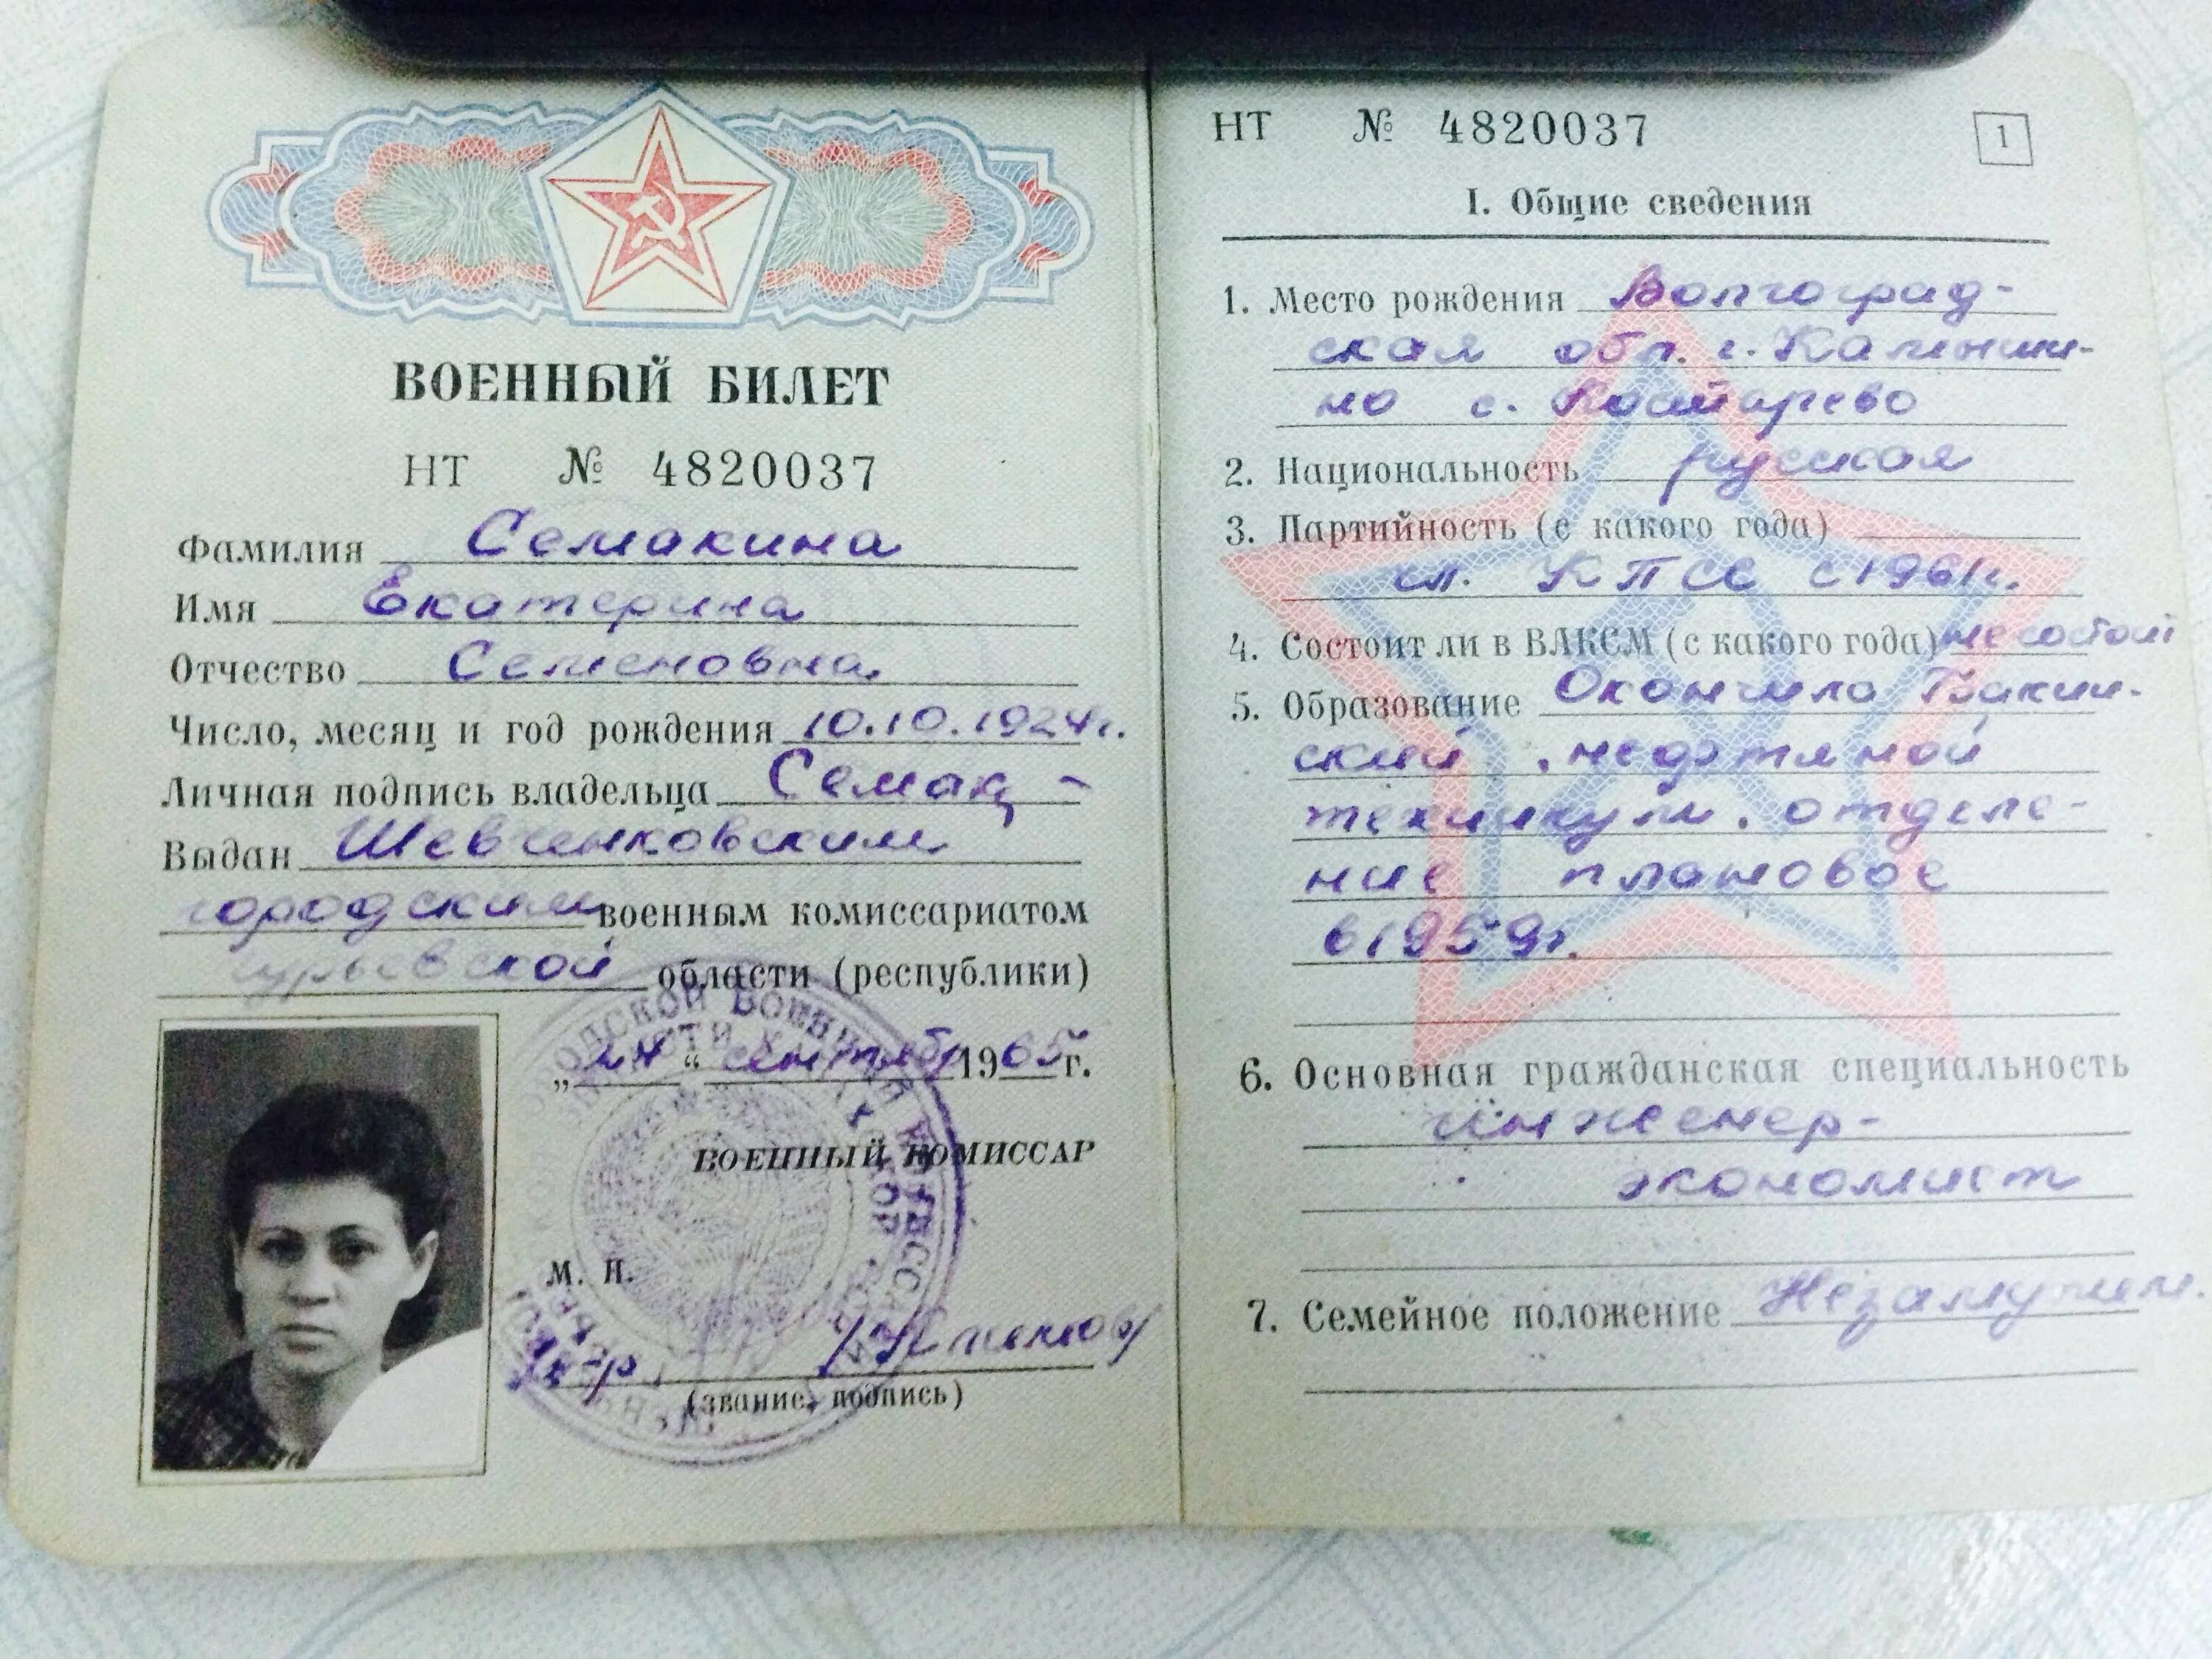 ВОЕННЫЙ БИЛЕТ
НТ № 4820037
Фамилия Семакина
Имя Екатерина
Отчество Семеновна
Число, месяц и год рождения 10.10.1924г.
Личная подпись владельца Семак
Выдан Шевченковским
городским военным комиссариатом
Гурьевской области (республики)
„24“ сентября 1965 г.
ВОЕННЫЙ КОМИССАР
М. П.
(звание, подпись)
НТ № 4820037
1
I. Общие сведения
1. Место рождения Волгоград-
ская обл. г. Калинин-
но с. Костарево
2. Национальность русская
3. Партийность (с какого года)
чл. КПСС с 1961г.
4. Состоит ли в ВЛКСМ (с какого года) не состоит
5. Образование Окончила Бакин-
ский нефтяной
техникум, отделе-
ние плановое
в 1959г.
6. Основная гражданская специальность
инженер-
экономист
7. Семейное положение Незамужем.